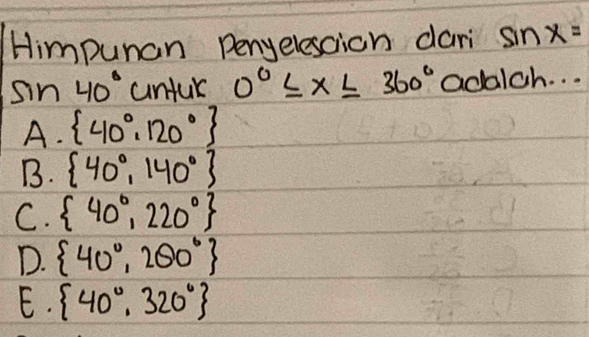 Himpunan Penyelesaian dari sin x =
sin 40° untuk 0° ≤ x ≤ 360° adalah...
A. {40°, 120°}
B. {40°, 140°}
C. {40°, 220°}
D. {40°, 280°}
E. {40°, 320°}